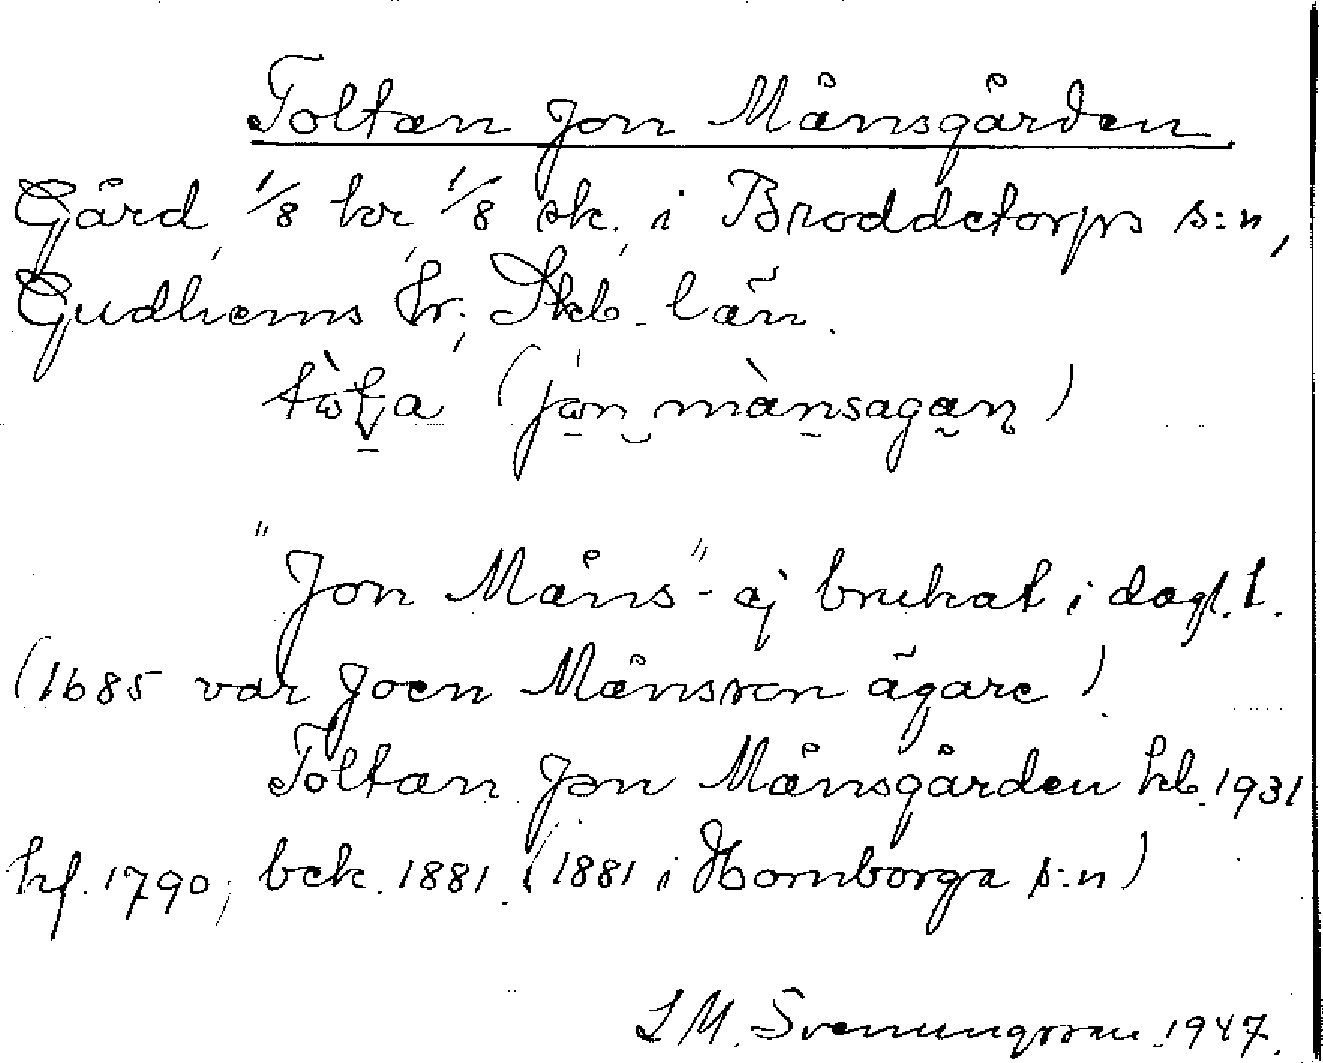 Toltan Jon Månsgården
Gård, 1/8 kr, 1/8 sk., i Broddetorps s:n,
Gudhems hr; Skb. län.
(jon månsagan)
"Jon Måns" - ej brukat i dagl. t.
(1685 var Joen Månsson ägare).
Toltan Jon Månsgården hb. 1931
hf. 1790, bek. 1881. (1881 i Hornborga s:n)
S M. Svenungsson 1947.